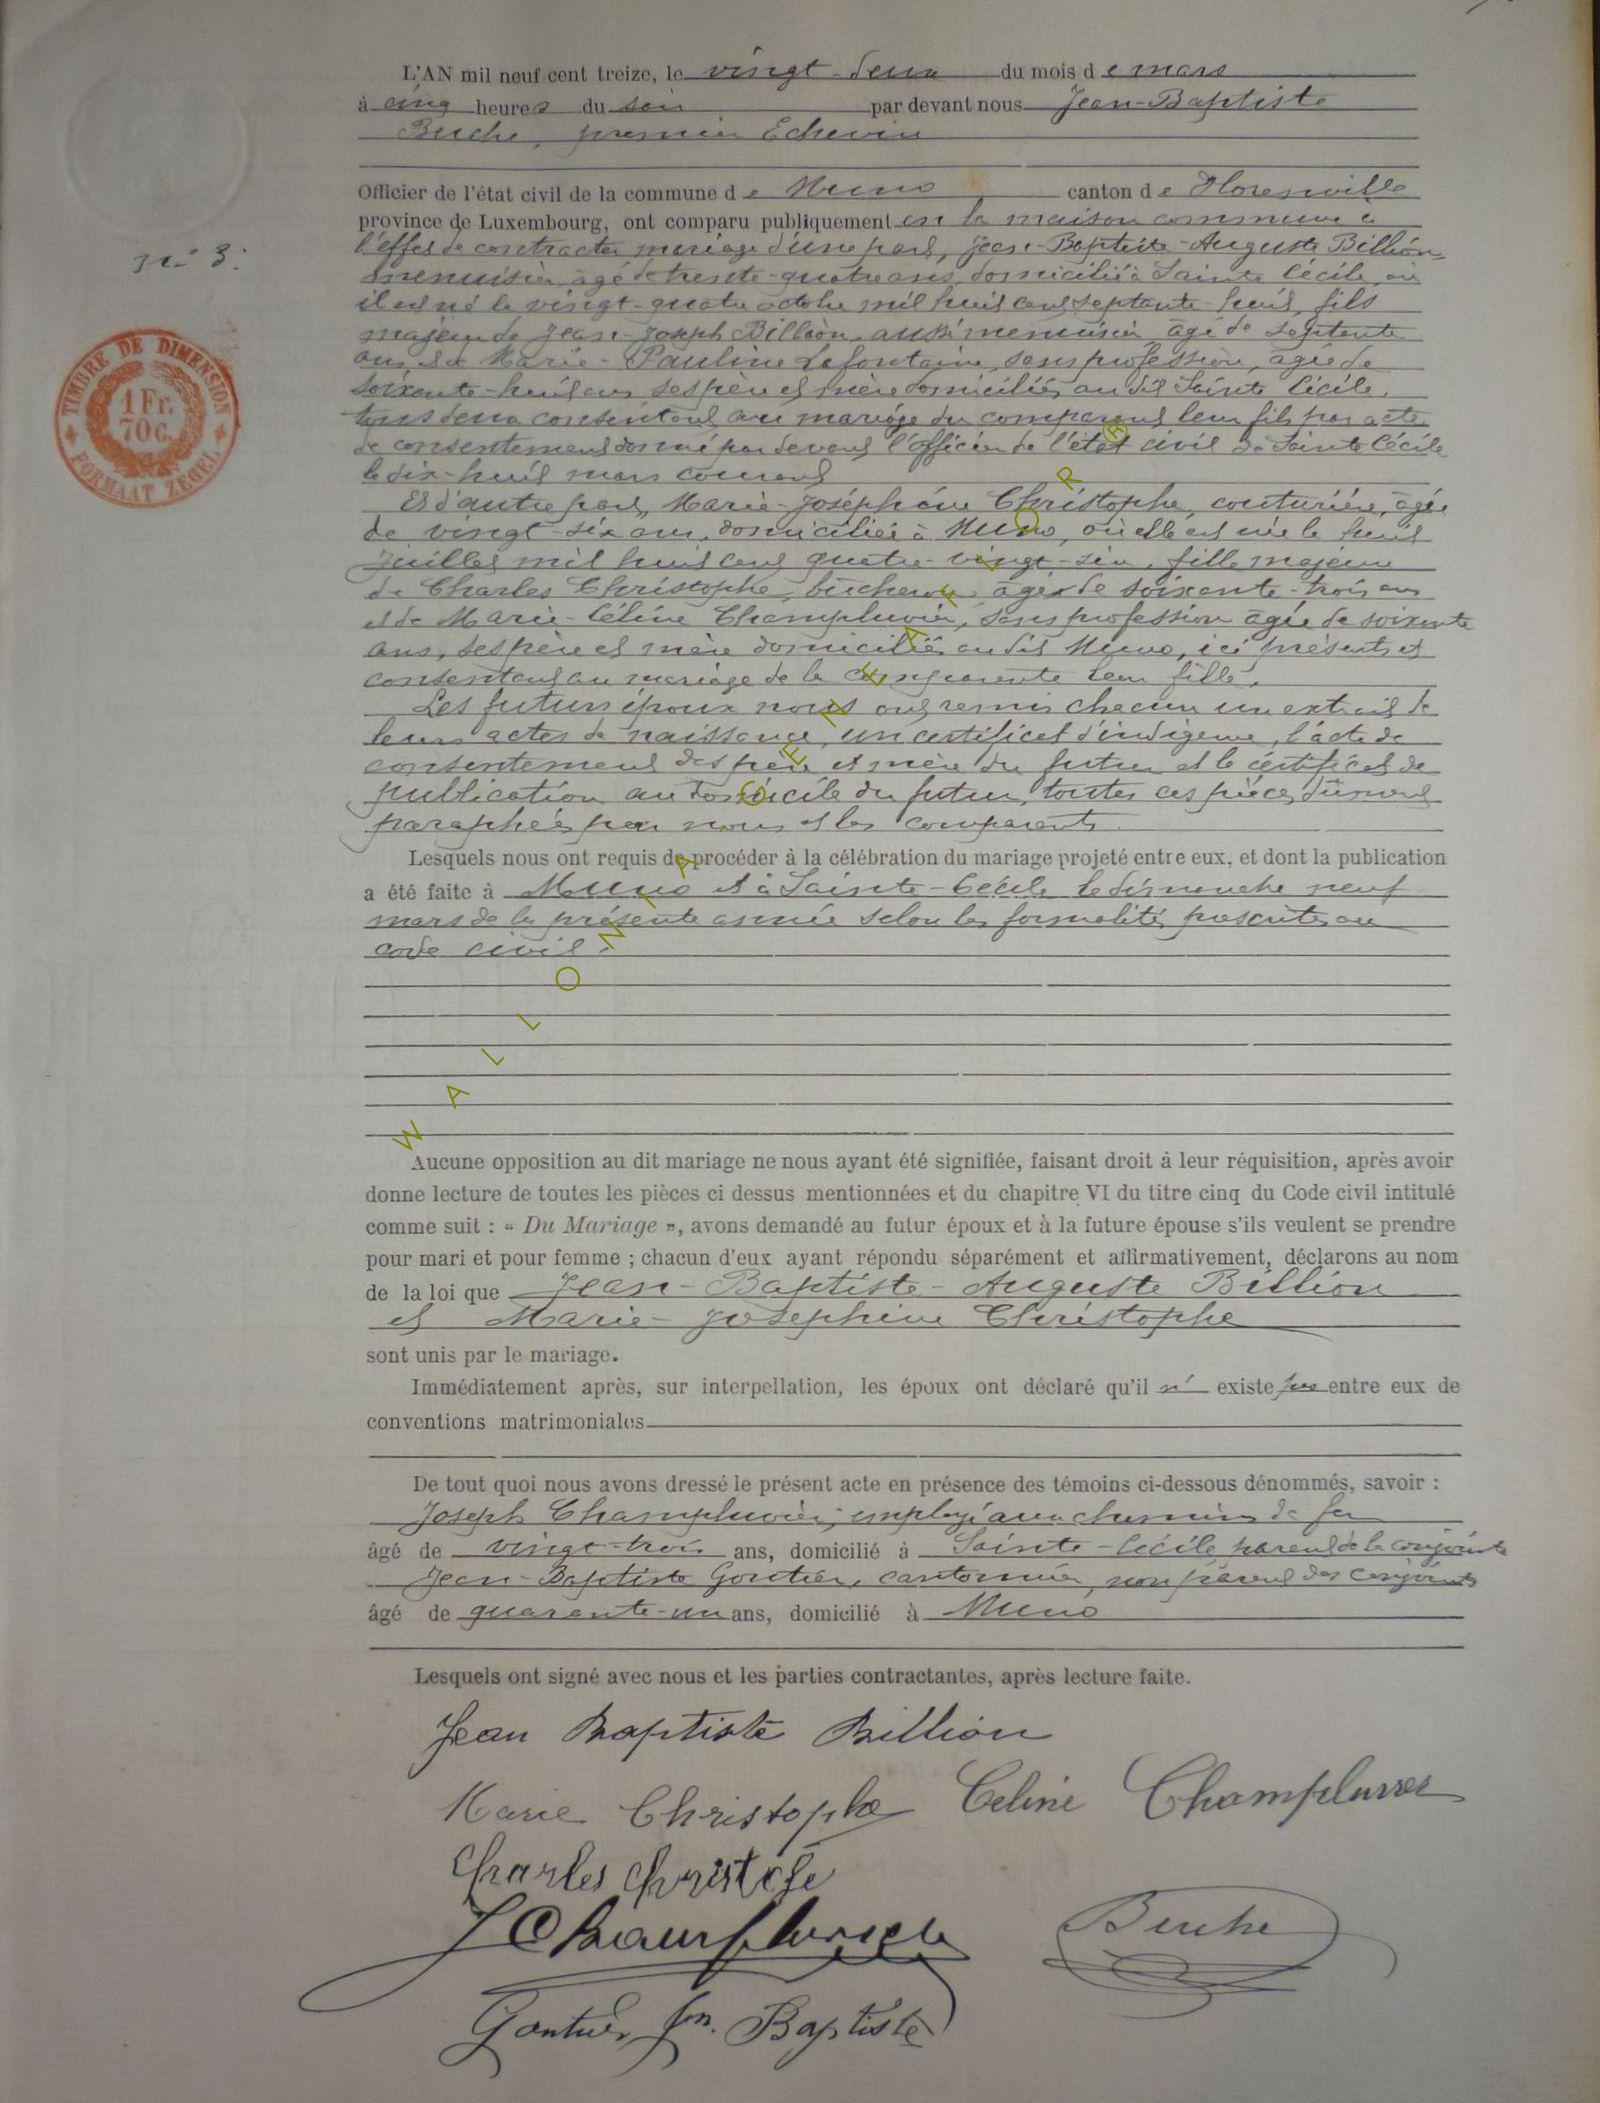 L'AN mil neuf cent treize, le vingt-deux du mois de mars
à cinq heures du soir par devant nous Jean-Baptiste
Buche, premier Echevin
Officier de l'état civil de la commune de Muno canton de Florenville
province de Luxembourg, ont comparu publiquement en la maison commune à
n° 3.
l'effet de contracter mariage d'une part, Jean-Baptiste-Auguste Billion,
menuisier, âgé de trente-quatre ans, domicilié à Sainte Cécile, où
il est né le vingt-quatre octobre mil huit cent septante-huit, fils
majeur de Jean-Joseph Billion, aussi menuisier âgé de septante
ans et de Marie-Pauline Lafontaine, sans profession, âgée de
soixante-huit ans, ses père et mère domiciliés au dit Sainte Cécile,
tous deux consentant au mariage du comparant leur fils par acte
de consentement donné par devant l'officier de l'état civil de Sainte Cécile
le dix-huit mars courant
Et d'autre part, Marie-Joséphine Christophe, couturière, âgée
de vingt-six ans, domiciliée à Muno, où elle est née le huit
Juillet mil huit cent quatre-vingt-six, fille majeure
de Charles Christophe, bûcheron, âgé de soixante-trois ans
et de Marie-Céline Champluvier, sans profession âgée de soixante
ans, ses père et mère domiciliés au dit Muno, ici présents et
consentant au mariage de la comparante leur fille.
Les futurs époux nous ont remis chacun un extrait de
leurs actes de naissance, un certificat d'indigence, l'acte de
consentement des père et mère du futur et le certificat de
publication au domicile du futur, toutes ces pièces dûment
paraphées par nous et les comparants.
Lesquels nous ont requis de procéder à la célébration du mariage projeté entre eux, et dont la publication
a été faite à Muno et à Sainte-Cécile le dimanche neuf
mars de la présente année selon les formalités prescrites au
code civil.
TIMBRE DE DIMENSION
1 Fr.
70 c.
FORMAAT ZEGEL
WALLONIA GENEALOR ®
Aucune opposition au dit mariage ne nous ayant été signifiée, faisant droit à leur réquisition, après avoir
donne lecture de toutes les pièces ci dessus mentionnées et du chapitre VI du titre cinq du Code civil intitulé
comme suit : « Du Mariage », avons demandé au futur époux et à la future épouse s'ils veulent se prendre
pour mari et pour femme ; chacun d'eux ayant répondu séparément et affirmativement, déclarons au nom
de la loi que Jean-Baptiste-Auguste Billion
et Marie-Josephine Christophe
sont unis par le mariage.
Immédiatement après, sur interpellation, les époux ont déclaré qu'il n' existe pas entre eux de
conventions matrimoniales
De tout quoi nous avons dressé le présent acte en présence des témoins ci-dessous dénommés, savoir :
Joseph Champluvier, employé aux chemins de fer
âgé de vingt-trois ans, domicilié à Sainte-Cécile parent de la conjointe
Jean-Baptiste Gontier, cantonnier, non parent des conjoints
âgé de quarante-un ans, domicilié à Muno
Lesquels ont signé avec nous et les parties contractantes, après lecture faite.
Jean Baptiste Billion
Marie Christophe Celine Champluvier
Charles Christophe
J Champluvier Buche
Gontier Jn. Baptiste